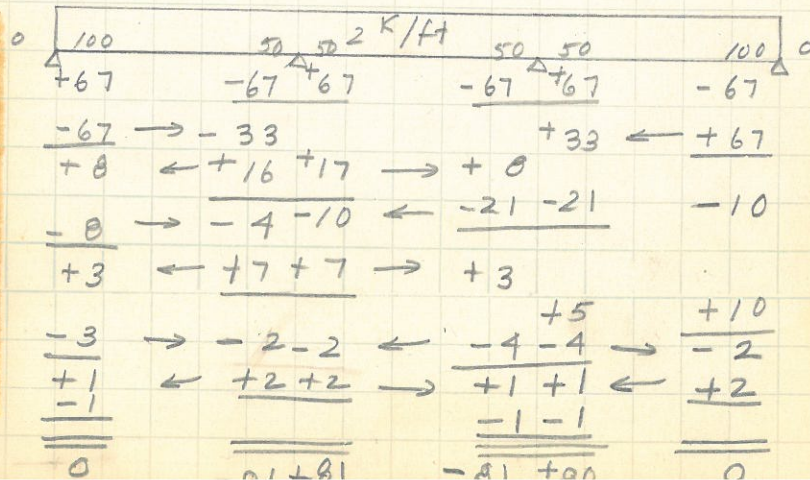 2 K/ft
0 100 50 50 50 50 100 0
+67 -67 +67 -67 +67 -67
-67 → -33 +33 ← +67
+8 ← +16 +17 → +8
-8 → -4 -10 ← -21 -21 -10
+3 ← +7 +7 → +3
+5 +10
-3 → -2 -2 ← -4 -4 → -2
+1 ← +2 +2 → +1 +1 ← +2
-1 -1 -1
0 +81 -81 0